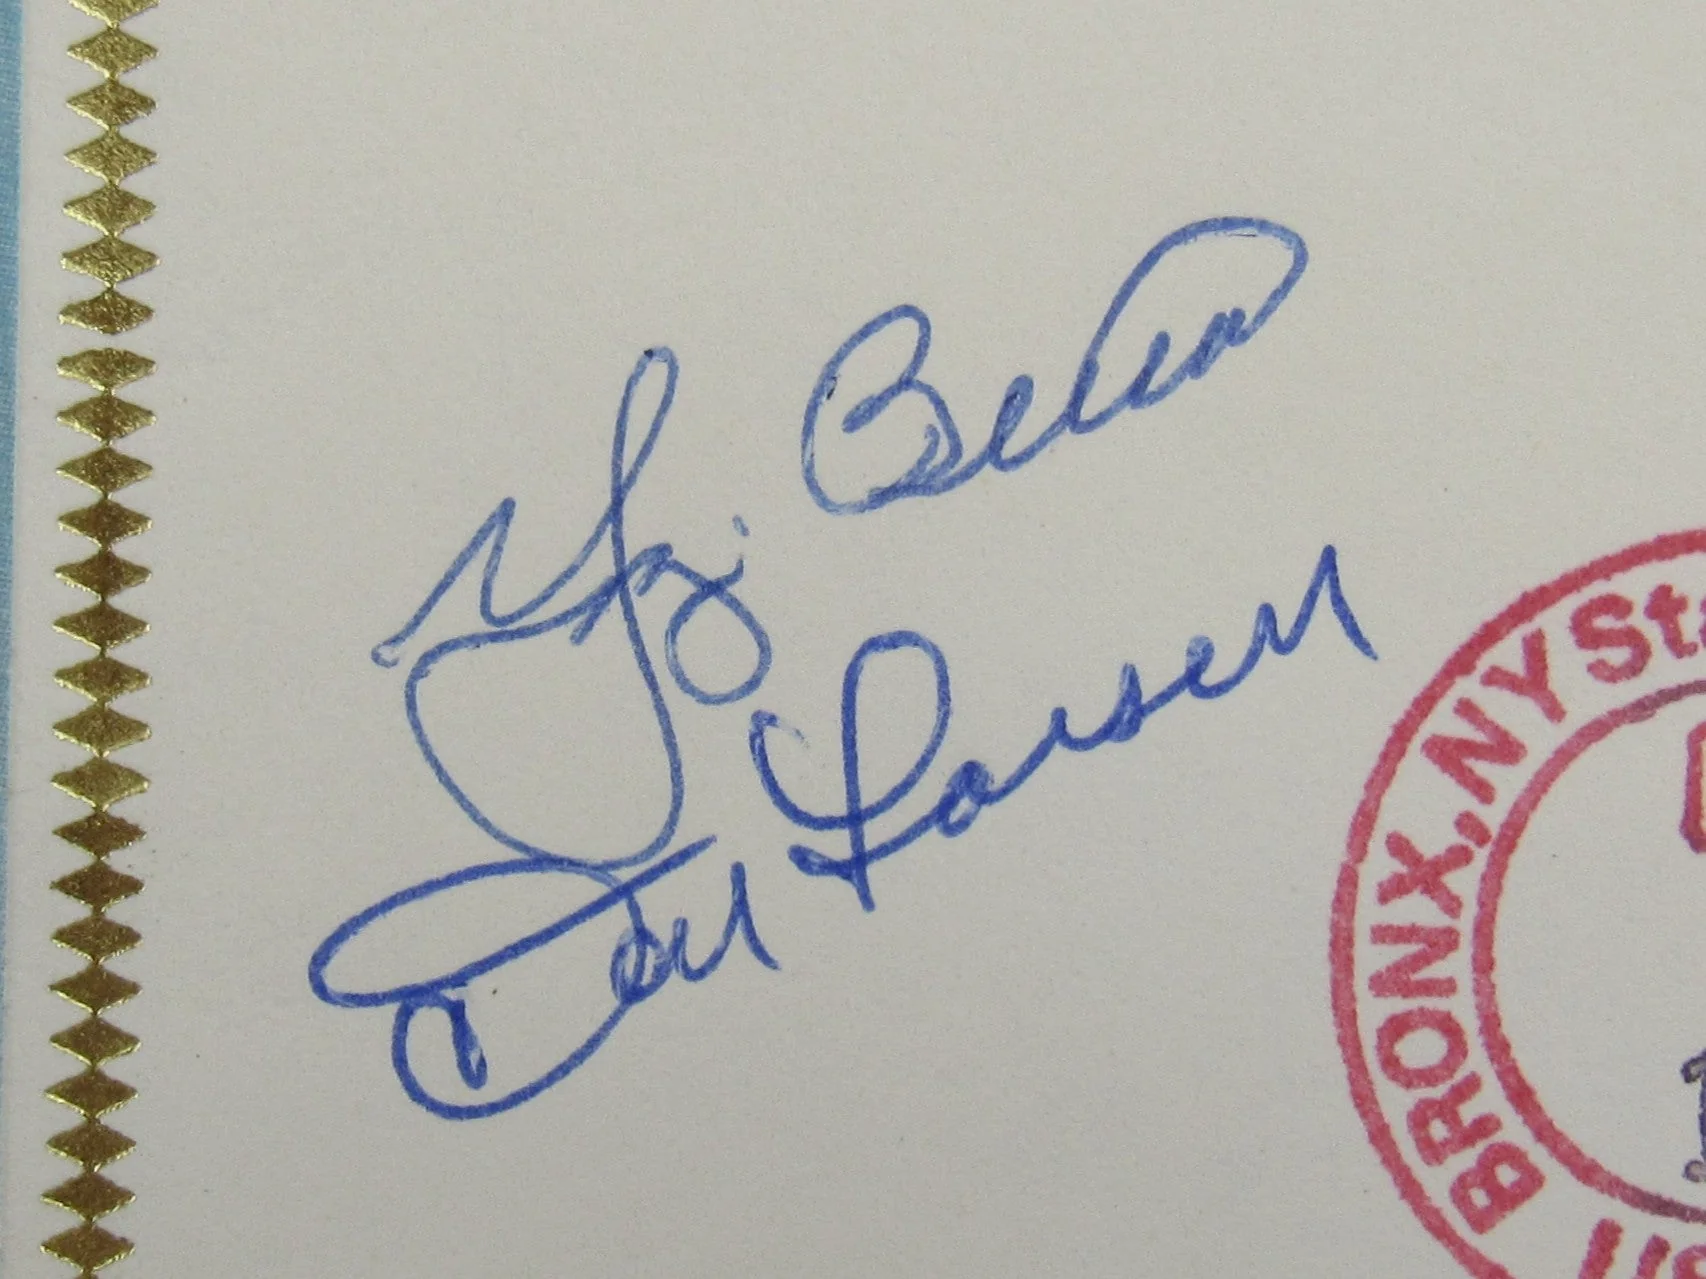 Yogi Berra
Don Larsen
BRONX, NY St